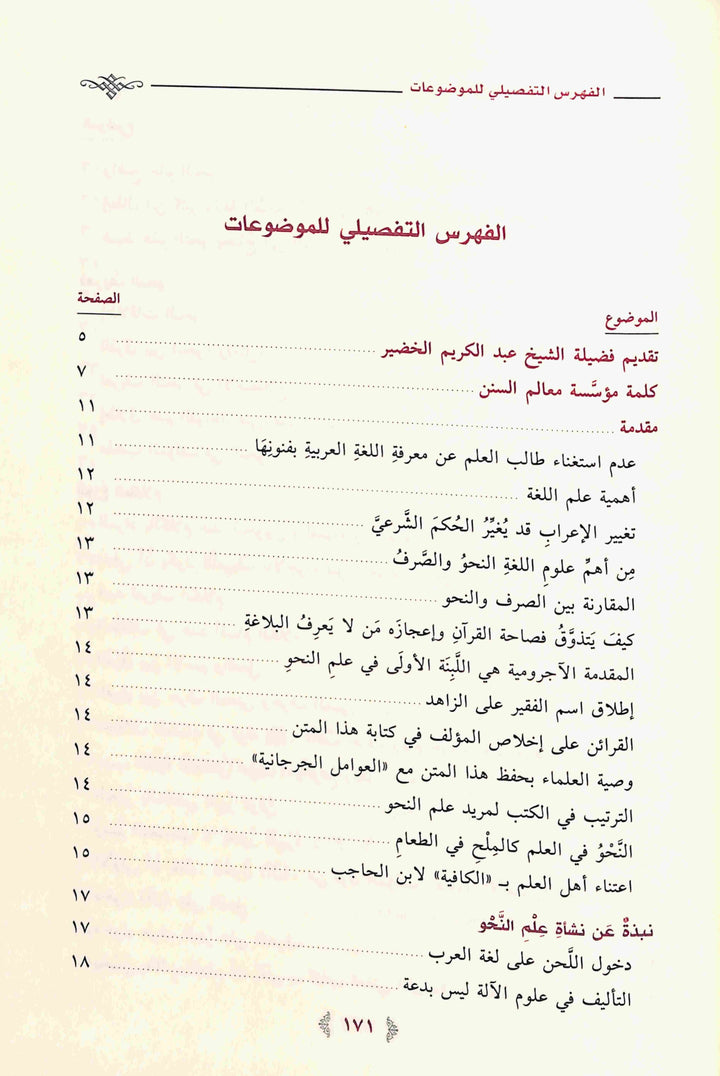 الفهرس التفصيلي للموضوعات
الفهرس التفصيلي للموضوعات
الموضوع الصفحة
تقديم فضيلة الشيخ عبد الكريم الخضير ٥
كلمة مؤسَّسة معالم السنن ٧
مقدمة ١١
عدم استغناء طالب العلم عن معرفةِ اللغةِ العربيةِ بفنونِهَا ١١
أهمية علم اللغة ١٢
تغيير الإعرابِ قد يُغيِّرُ الحُكمَ الشَّرعيَّ ١٢
مِن أهمِّ علومِ اللغةِ النحوُ والصَّرفُ ١٣
المقارنة بين الصرف والنحو ١٣
كيفَ يَتذوَّقُ فصاحة القرآنِ وإعجازَه مَن لا يَعرِفُ البلاغةِ ١٣
المقدمة الآجرومية هي اللَّبِنَة الأولَى في علمِ النحوِ ١٤
إطلاق اسم الفقير على الزاهد ١٤
القرائن على إخلاص المؤلف في كتابة هذا المتن ١٤
وصية العلماء بحفظ هذا المتن مع «العوامل الجرجانية» ١٤
الترتيب في الكتب لمريد علم النحو ١٤
النَّحْوُ في العلم كالمِلْحِ في الطعامِ ١٥
اعتناء أهل العلم بـ «الكافية» لابن الحاجب ١٥
نبذةٌ عَن نشأةِ عِلْمِ النَّحْوِ ١٧
دخول اللَّحن على لغة العرب ١٧
التأليف في علوم الآلة ليس بدعة ١٨
١٧١